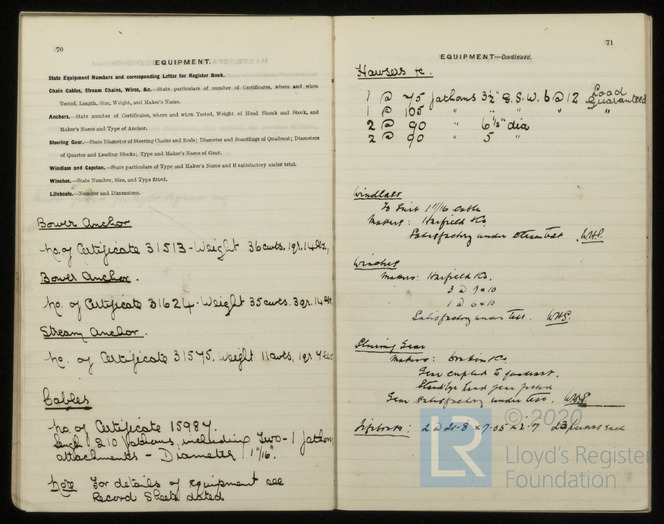 70
EQUIPMENT.
State Equipment Numbers and corresponding Letter for Register Book.
Chain Cables, Stream Chains, Wires, &c.—State particulars of number of Certificates, where and when
Tested, Length, Size, Weight, and Maker's Name.
Anchors.—State number of Certificates, where and when Tested, Weight of Head Shank and Stock, and
Maker's Name and Type of Anchor.
Steering Gear.—State Diameter of Steering Chains and Rods; Diameter and Scantlings of Quadrant; Diameters
of Quarter and Leading Blocks; Type and Maker's Name of Gear.
Windlass and Capstan.—State particulars of Type and Maker's Name and if satisfactory under trial.
Winches.—State Number, Size, and Type fitted.
Lifeboats.—Number and Dimensions.
Bower Anchor
No. of Certificate 31513 - Weight 36 cwts. 1 qr. 14 lbs,
Bower Anchor.
No. of Certificate 31624. Weight 35 cwts. 3 qr. 14
Stream Anchor.
No. of Certificate 31575. Weight 11 cwts, 1 qr. 7 lbs
Cables
No. of Certificate 15987.
210 fathoms, including Two - 1 fathom
attachments - Diameter 1"/16".
Note For details of equipment see
Record Sheets dated
71
EQUIPMENT—Continued.
Hawsers &c.
1 @ 75 fathoms 3½" G. S. W. 6 @ 12 Load
1 @ 105 " " Guaranteed
2 @ 90 " 6½" dia "
2 @ 90 " 5 "
Windlass
To suit 1"/16 cable
Makers: Harfield &Co.
Satisfactory under steam test. W.H.S.
Winches
Makers: Harfield &Co.
3 @ 7 × 10
1 @ 6 × 10
Satisfactory under test. W.H.S.
Steering Gear
Makers: &Co
Gear
gear
Gear satisfactory under test. W.H.S
Lifeboats: 2 @ 25.8 × 7.05 × 2.7 23 persons each
© 2020
LR
Lloyd's Register
Foundation